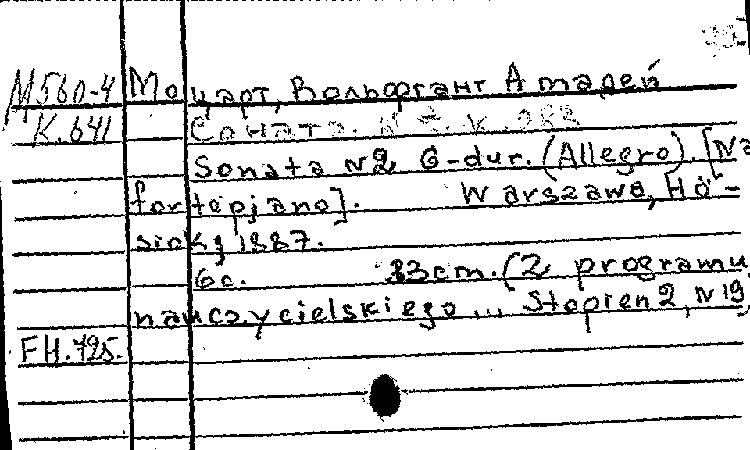 М560-4 Моцарт, Вольфгант Амадей
К.641 Соната. № 2. К. 283
Sonata N2 G-dur. (Allegro). [Na
fortepjano]. Warszawa, Hö-
sick, 1887.
6c. 33cm. (Z programu
nauczycielskiego... Stopien 2, N19,
FH.725.